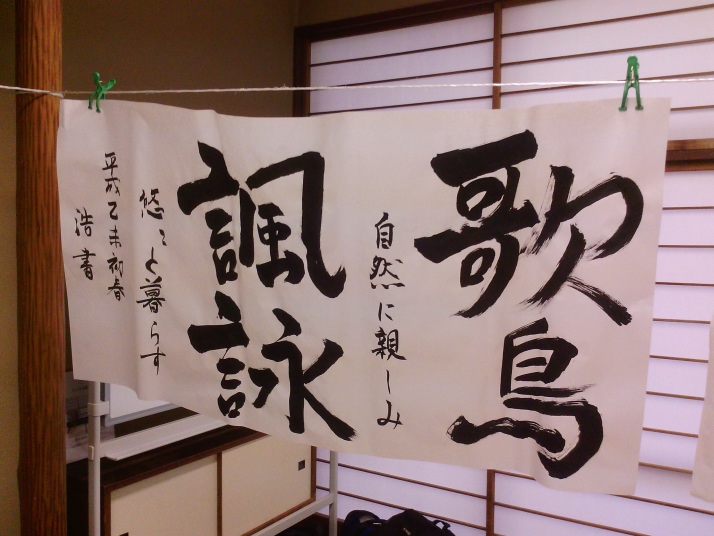 歌鳥
自然に親しみ
諷詠
悠々と暮らす
平成乙未初春
浩書